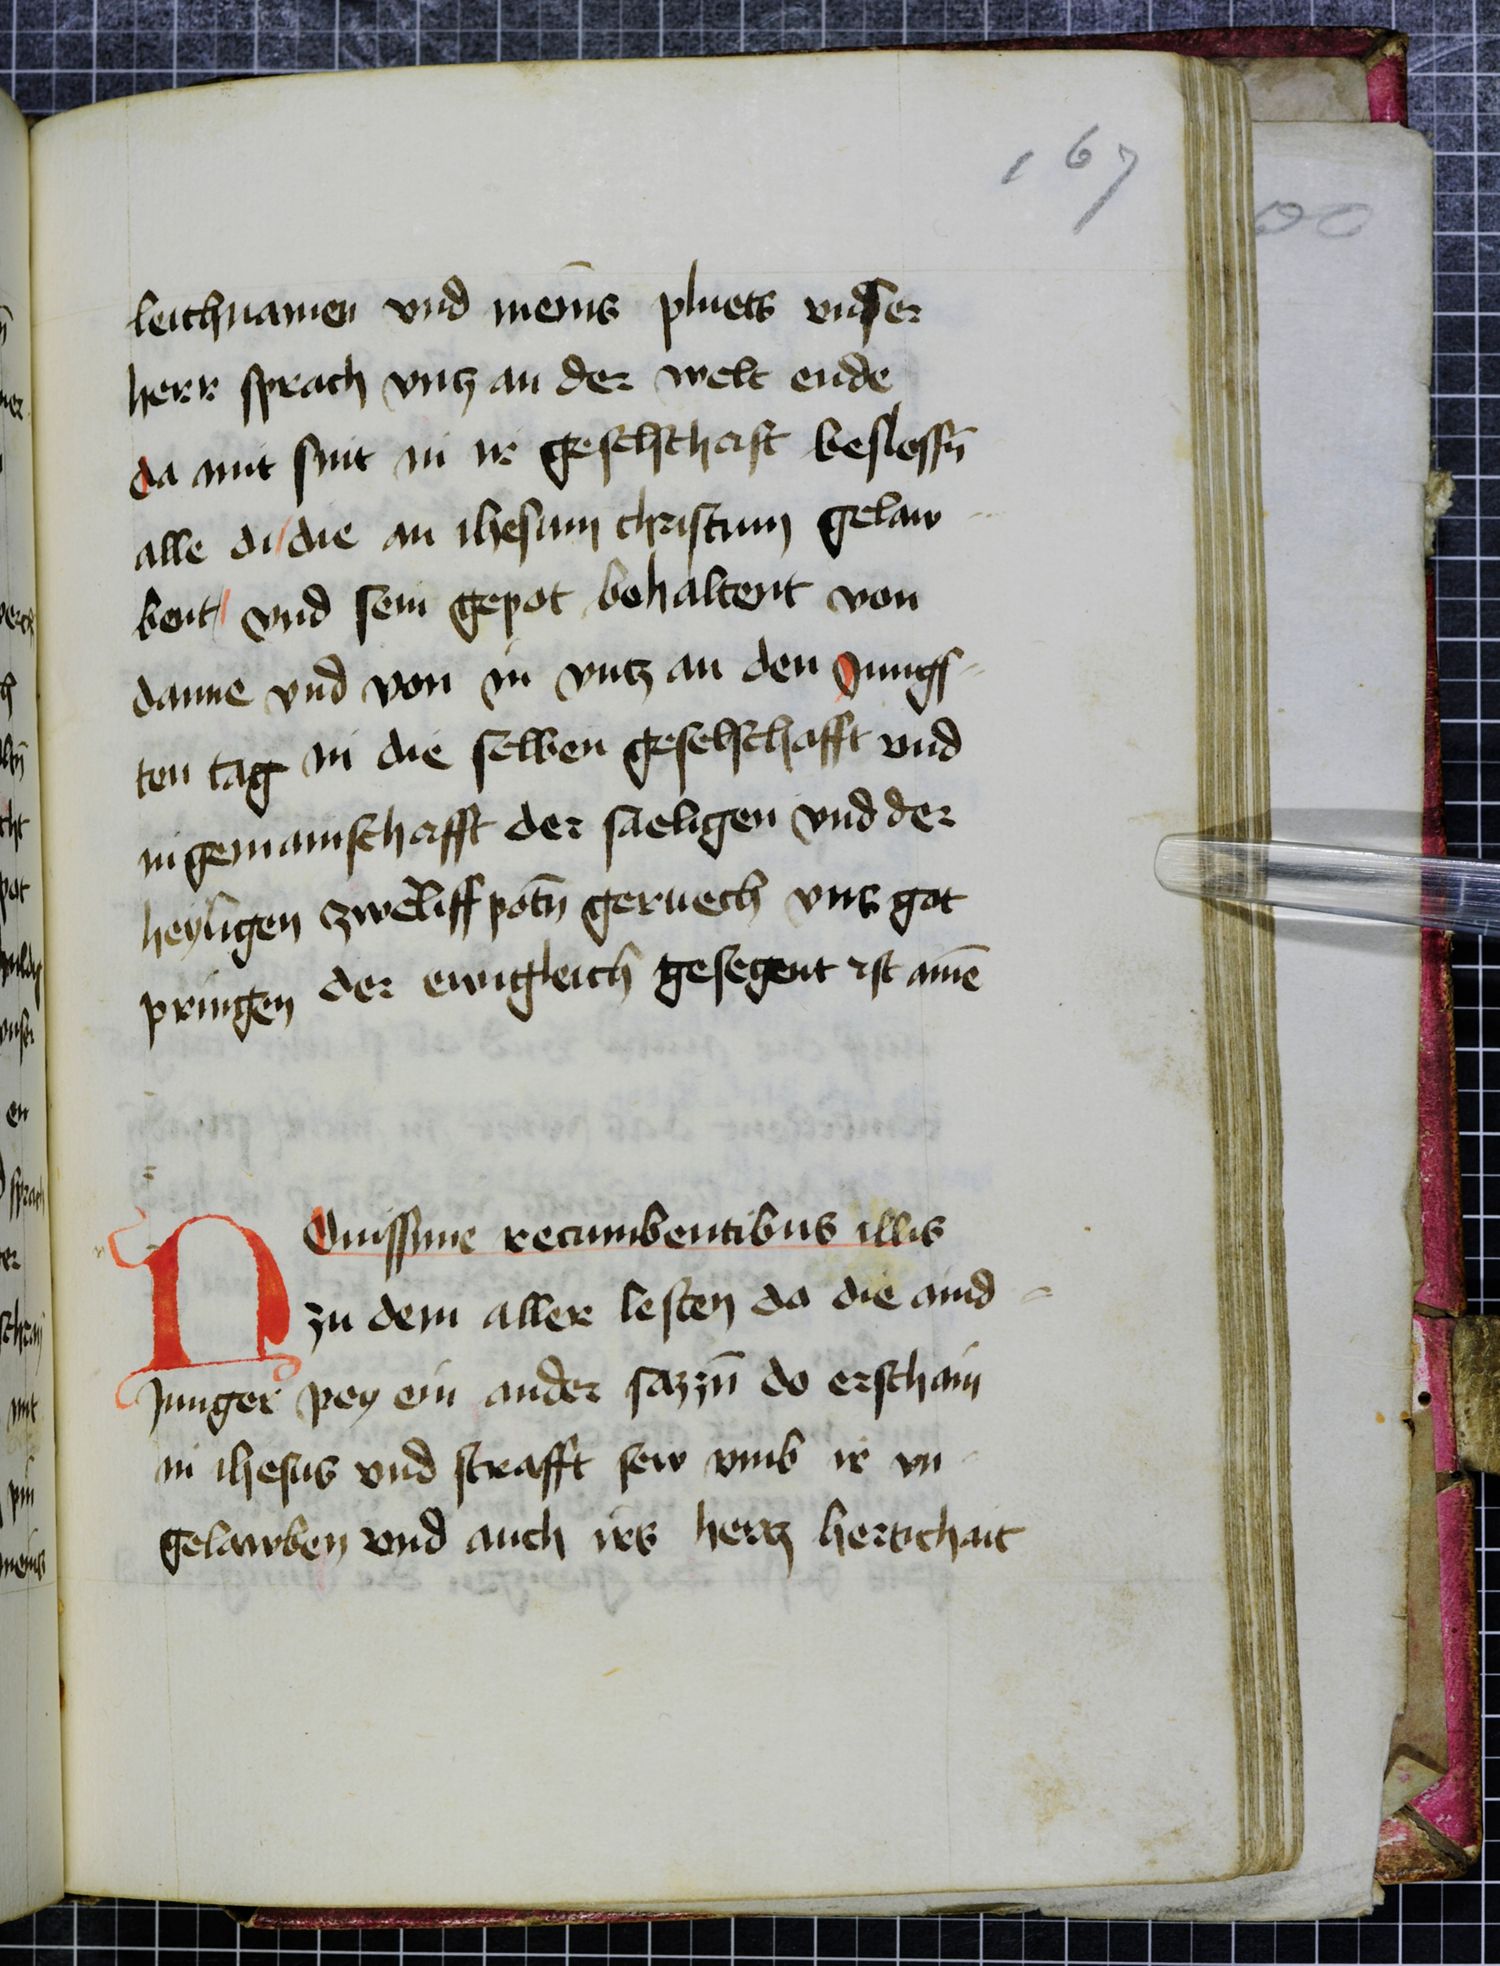 167
leichnamen vnd meins pluets vnser
herr sprach vntz an der welt ende
da mit sint in ir geselschaft beslossn̄
alle di die an ihesum christum gelaw
bent vnd sein gepot behaltent von
danne vnd von in vntz an den Jungs
ten tag in die selben geselschafft vnd
in gemainschafft der saeligen vnd der
heyligen zweliff potn̄ geruech vns got
pringen der ewigleich gesegent ist amē
NOuissyme recumbentibus illis
zu dem aller lesten da die aind
Junger pey ein ander sazzn̄ do erschain
in ihesus vnd strafft sew vmb ir vn
gelawben vnd auch irs hertz hertichait